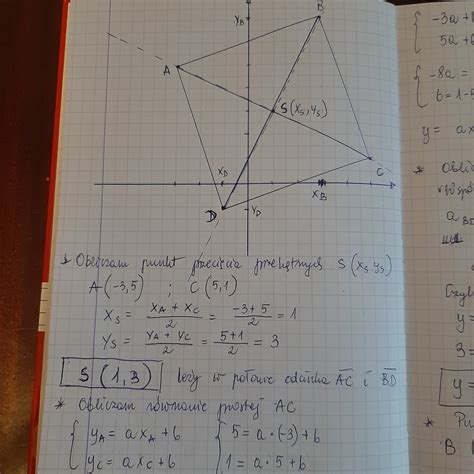 y_B
B
A
S(x_S, y_S)
x_D
C
D
y_D
x_B
* Obliczam punkt przecięcia przekątnych S(x_S y_S)
A(-3,5) ; C(5,1)
x_S = (x_A + x_C)/2 = (-3+5)/2 = 1
y_S = (y_A + y_C)/2 = (5+1)/2 = 3
S (1,3) leży w połowie odcinka AC i BD
* Obliczam równanie prostej AC
{ y_A = a x_A + b { 5 = a·(-3) + b
y_C = a x_C + b 1 = a·5 + b
{ -3a + b
5a + b
{ -8a =
b = 1-5
y = ax
* Oblic
a_BD
y =
3 =
y =
B